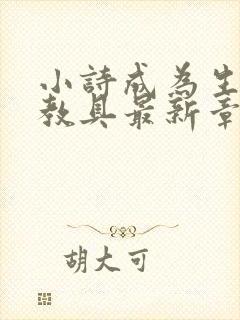 小詩成為生
教具最新章
胡大可